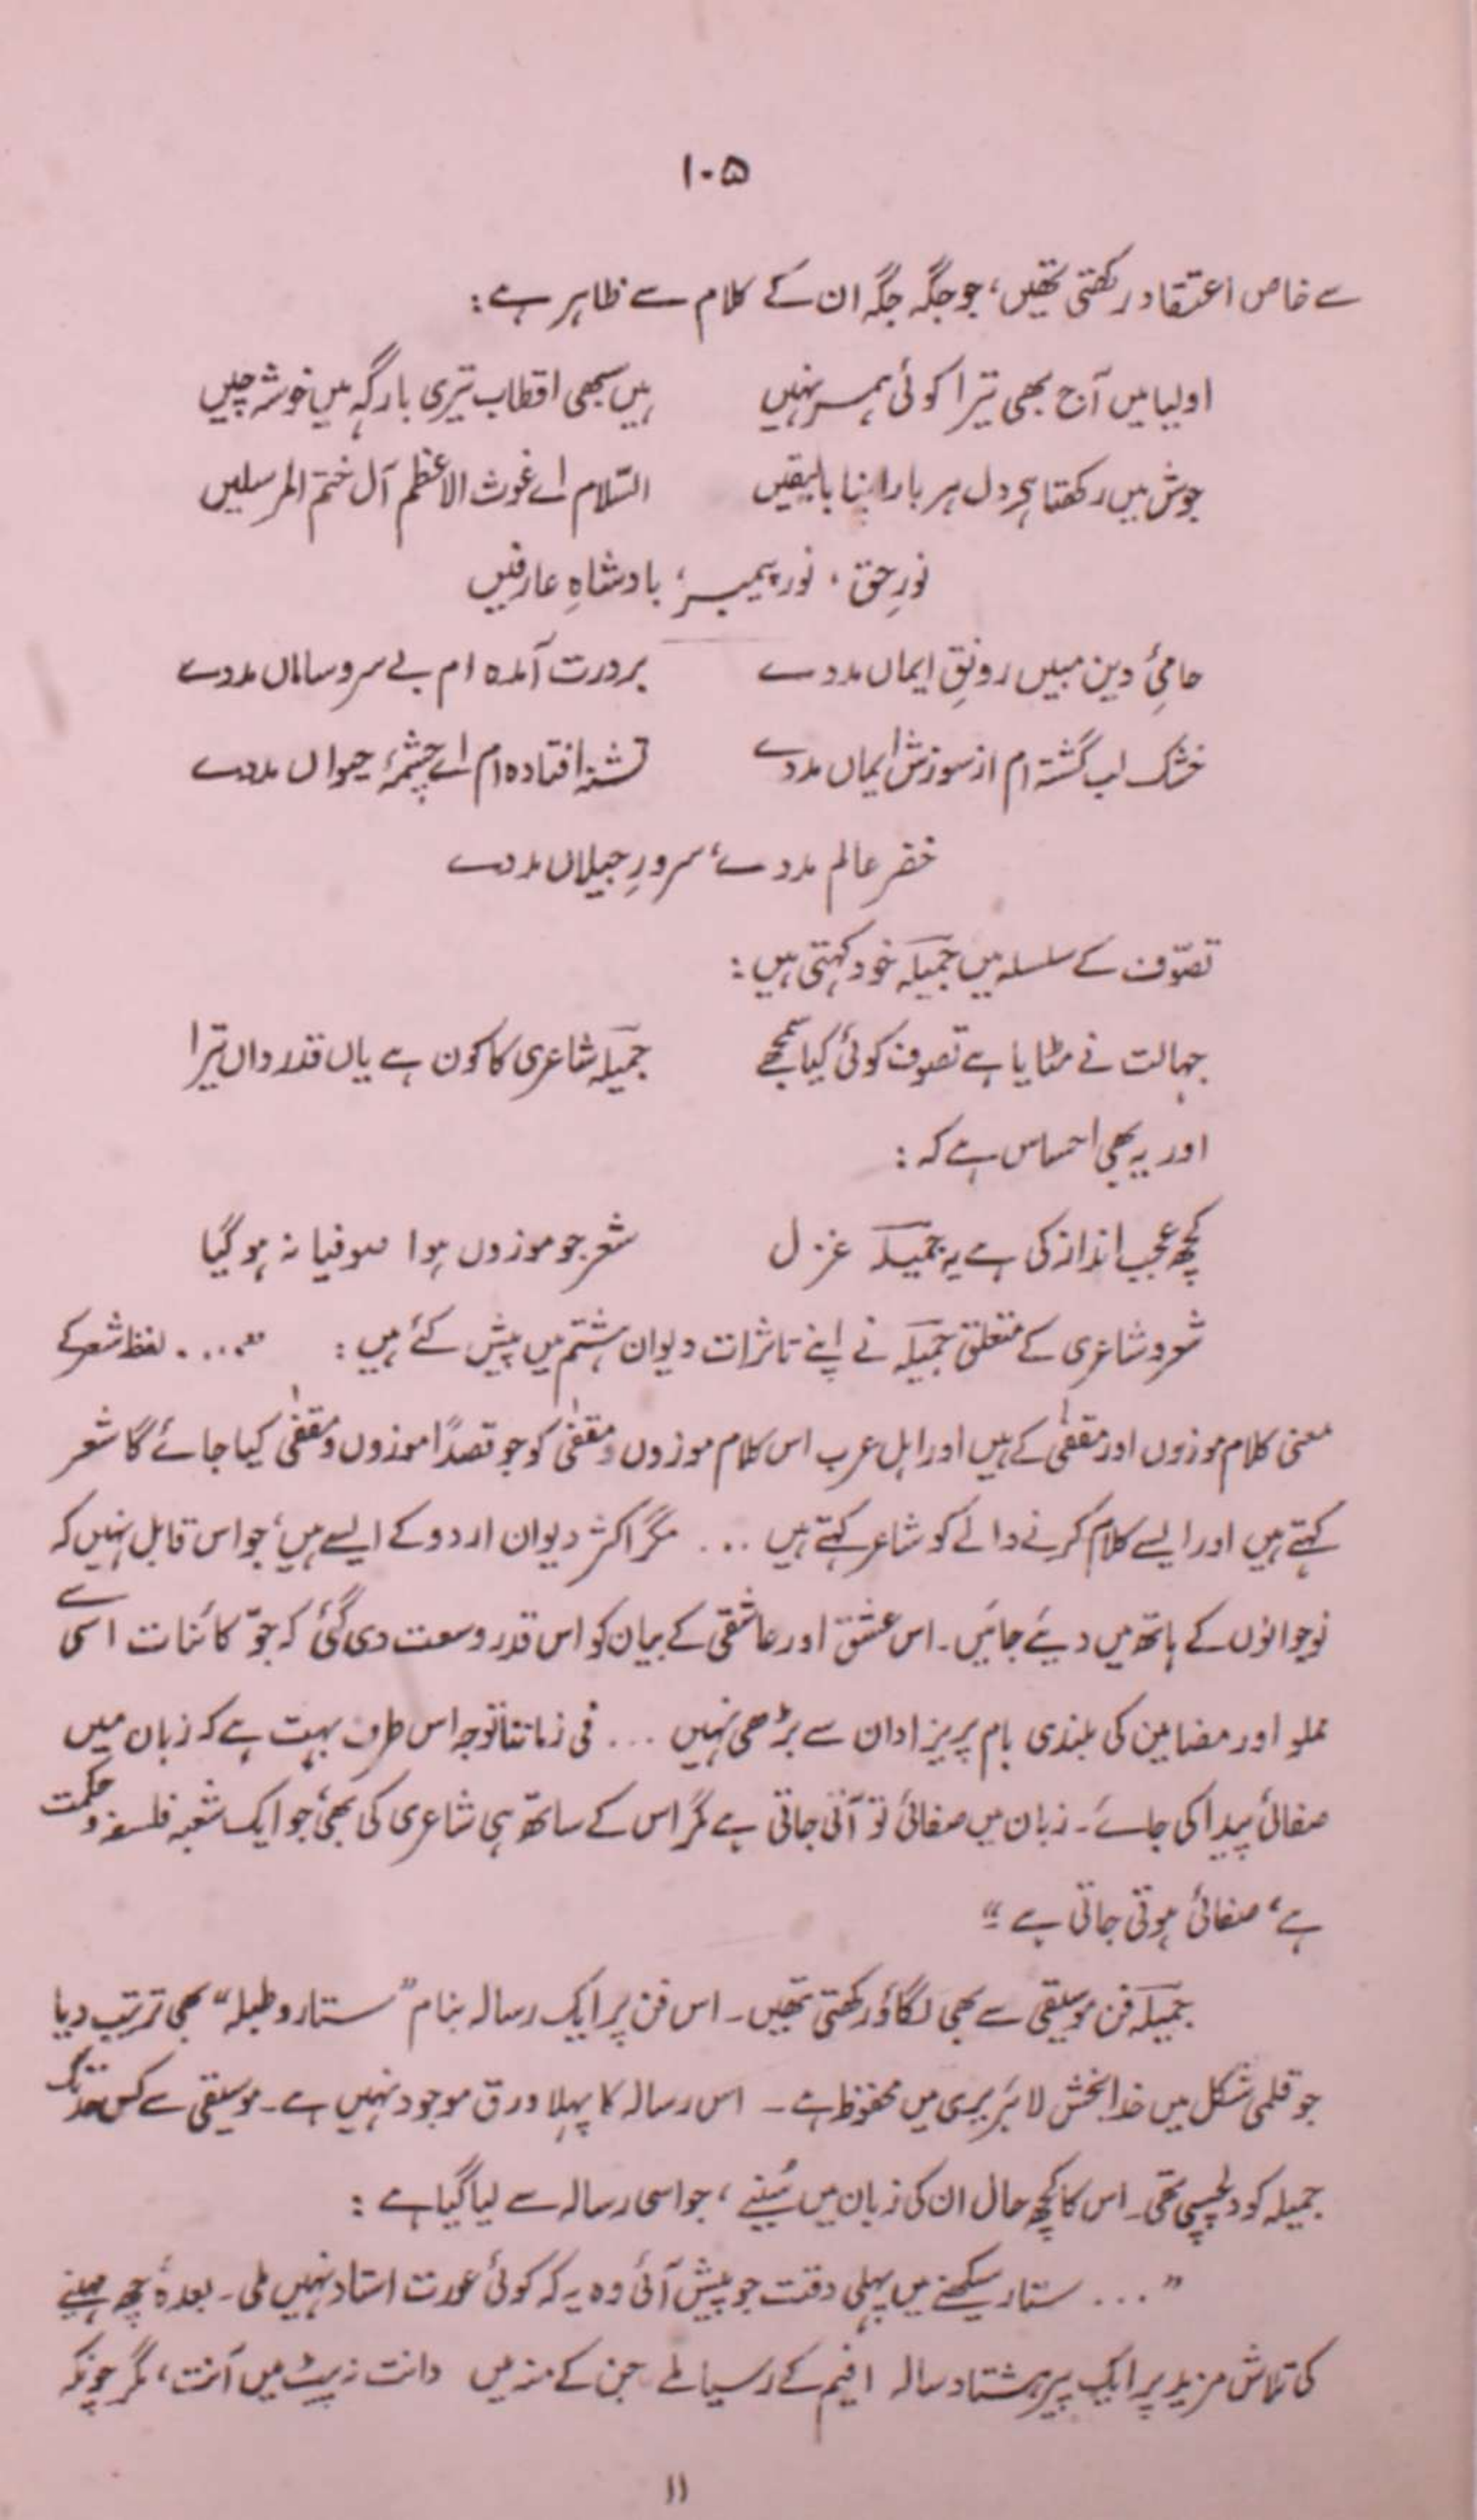 ۱۰۵
سے خاص اعتقاد رکھتی تھیں، جو جگہ جگہ ان کے کلام سے ظاہر ہے :
اولیا میں آج بھی تیرا کوئی ہمسر نہیں ہیں سبھی اقطاب تیری بارگہ میں خوشہ چیں
جوش میں رکھتا ہی دل ہر بار اپنا بالیقیں السّلام اے غوث الاعظم آل ختم المرسلیں
نورِ حق ، نور پیمبر، بادشاہِ عارفیں
حامیٔ دین مبیں رونقِ ایماں مددے بردرت آمدہ ام بے سروساماں مددے
خشک لب گشتہ ام از سوزش ایماں مددے تشنہ افتادہ ام اے چشمۂ حیواں مددے
خضر عالم مددے، سرورِ جیلاں مددے
تصوّف کے سلسلہ میں جمیلہ خود کہتی ہیں :
جہالت نے مٹایا ہے تصوف کوئی کیا سمجھے جمیلہ شاعری کا کون ہے یاں قدرداں تیرا
اور یہ بھی احساس ہے کہ :
کچھ عجب انداز کی ہے یہ جمیلہ غزل شعر جو موزوں ہوا صوفیانہ ہو گیا
شعر و شاعری کے متعلق جمیلہ نے اپنے تاثرات دیوان ہشتم میں پیش کئے ہیں : ”.... لفظ شعر کے
معنی کلام موزوں اور مقفیٰ کے ہیں اور اہل عرب اس کلام موزوں و مقفیٰ کو جو قصداً موزوں و مقفیٰ کیا جائے گا شعر
کہتے ہیں اور ایسے کلام کرنے والے کو شاعر کہتے ہیں ... مگر اکثر دیوان اردو کے ایسے ہیں، جو اس قابل نہیں کہ
نوجوانوں کے ہاتھ میں دیئے جائیں۔ اس عشق اور عاشقی کے بیان کو اس قدر وسعت دی گئی کہ جوّ کائنات اسی سے
مملو اور مضامین کی بلندی بام پریزادان سے بڑھی نہیں ... فی زماننا توجہ اس طرف بہت ہے کہ زبان میں
صفائی پیدا کی جائے۔ زبان میں صفائی تو آتی جاتی ہے مگر اس کے ساتھ ہی شاعری کی بھی، جو ایک شعبہ فلسفہ و حکمت
ہے، صفائی ہوتی جاتی ہے “
جمیلہ فن موسیقی سے بھی لگاؤ رکھتی تھیں۔ اس فن پر ایک رسالہ بنام ”ستار و طبلہ“ بھی ترتیب دیا
جو قلمی شکل میں خدابخش لائبریری میں محفوظ ہے۔ اس رسالہ کا پہلا ورق موجود نہیں ہے۔ موسیقی سے کس حد تک
جمیلہ کو دلچسپی تھی۔ اس کا کچھ حال ان کی زبان میں سُنیئے ، جو اسی رسالہ سے لیا گیا ہے :
”... ستار سیکھنے میں پہلی دقت جو پیش آئی وہ یہ کہ کوئی عورت استاد نہیں ملی۔ بعدہٗ چھ مہینے
کی تلاش مزید پر ایک پیر ہشتاد سالہ افیم کے رسیا ملے جن کے منہ میں دانت نہ پیٹ میں آنت، مگر چونکہ
۱۱